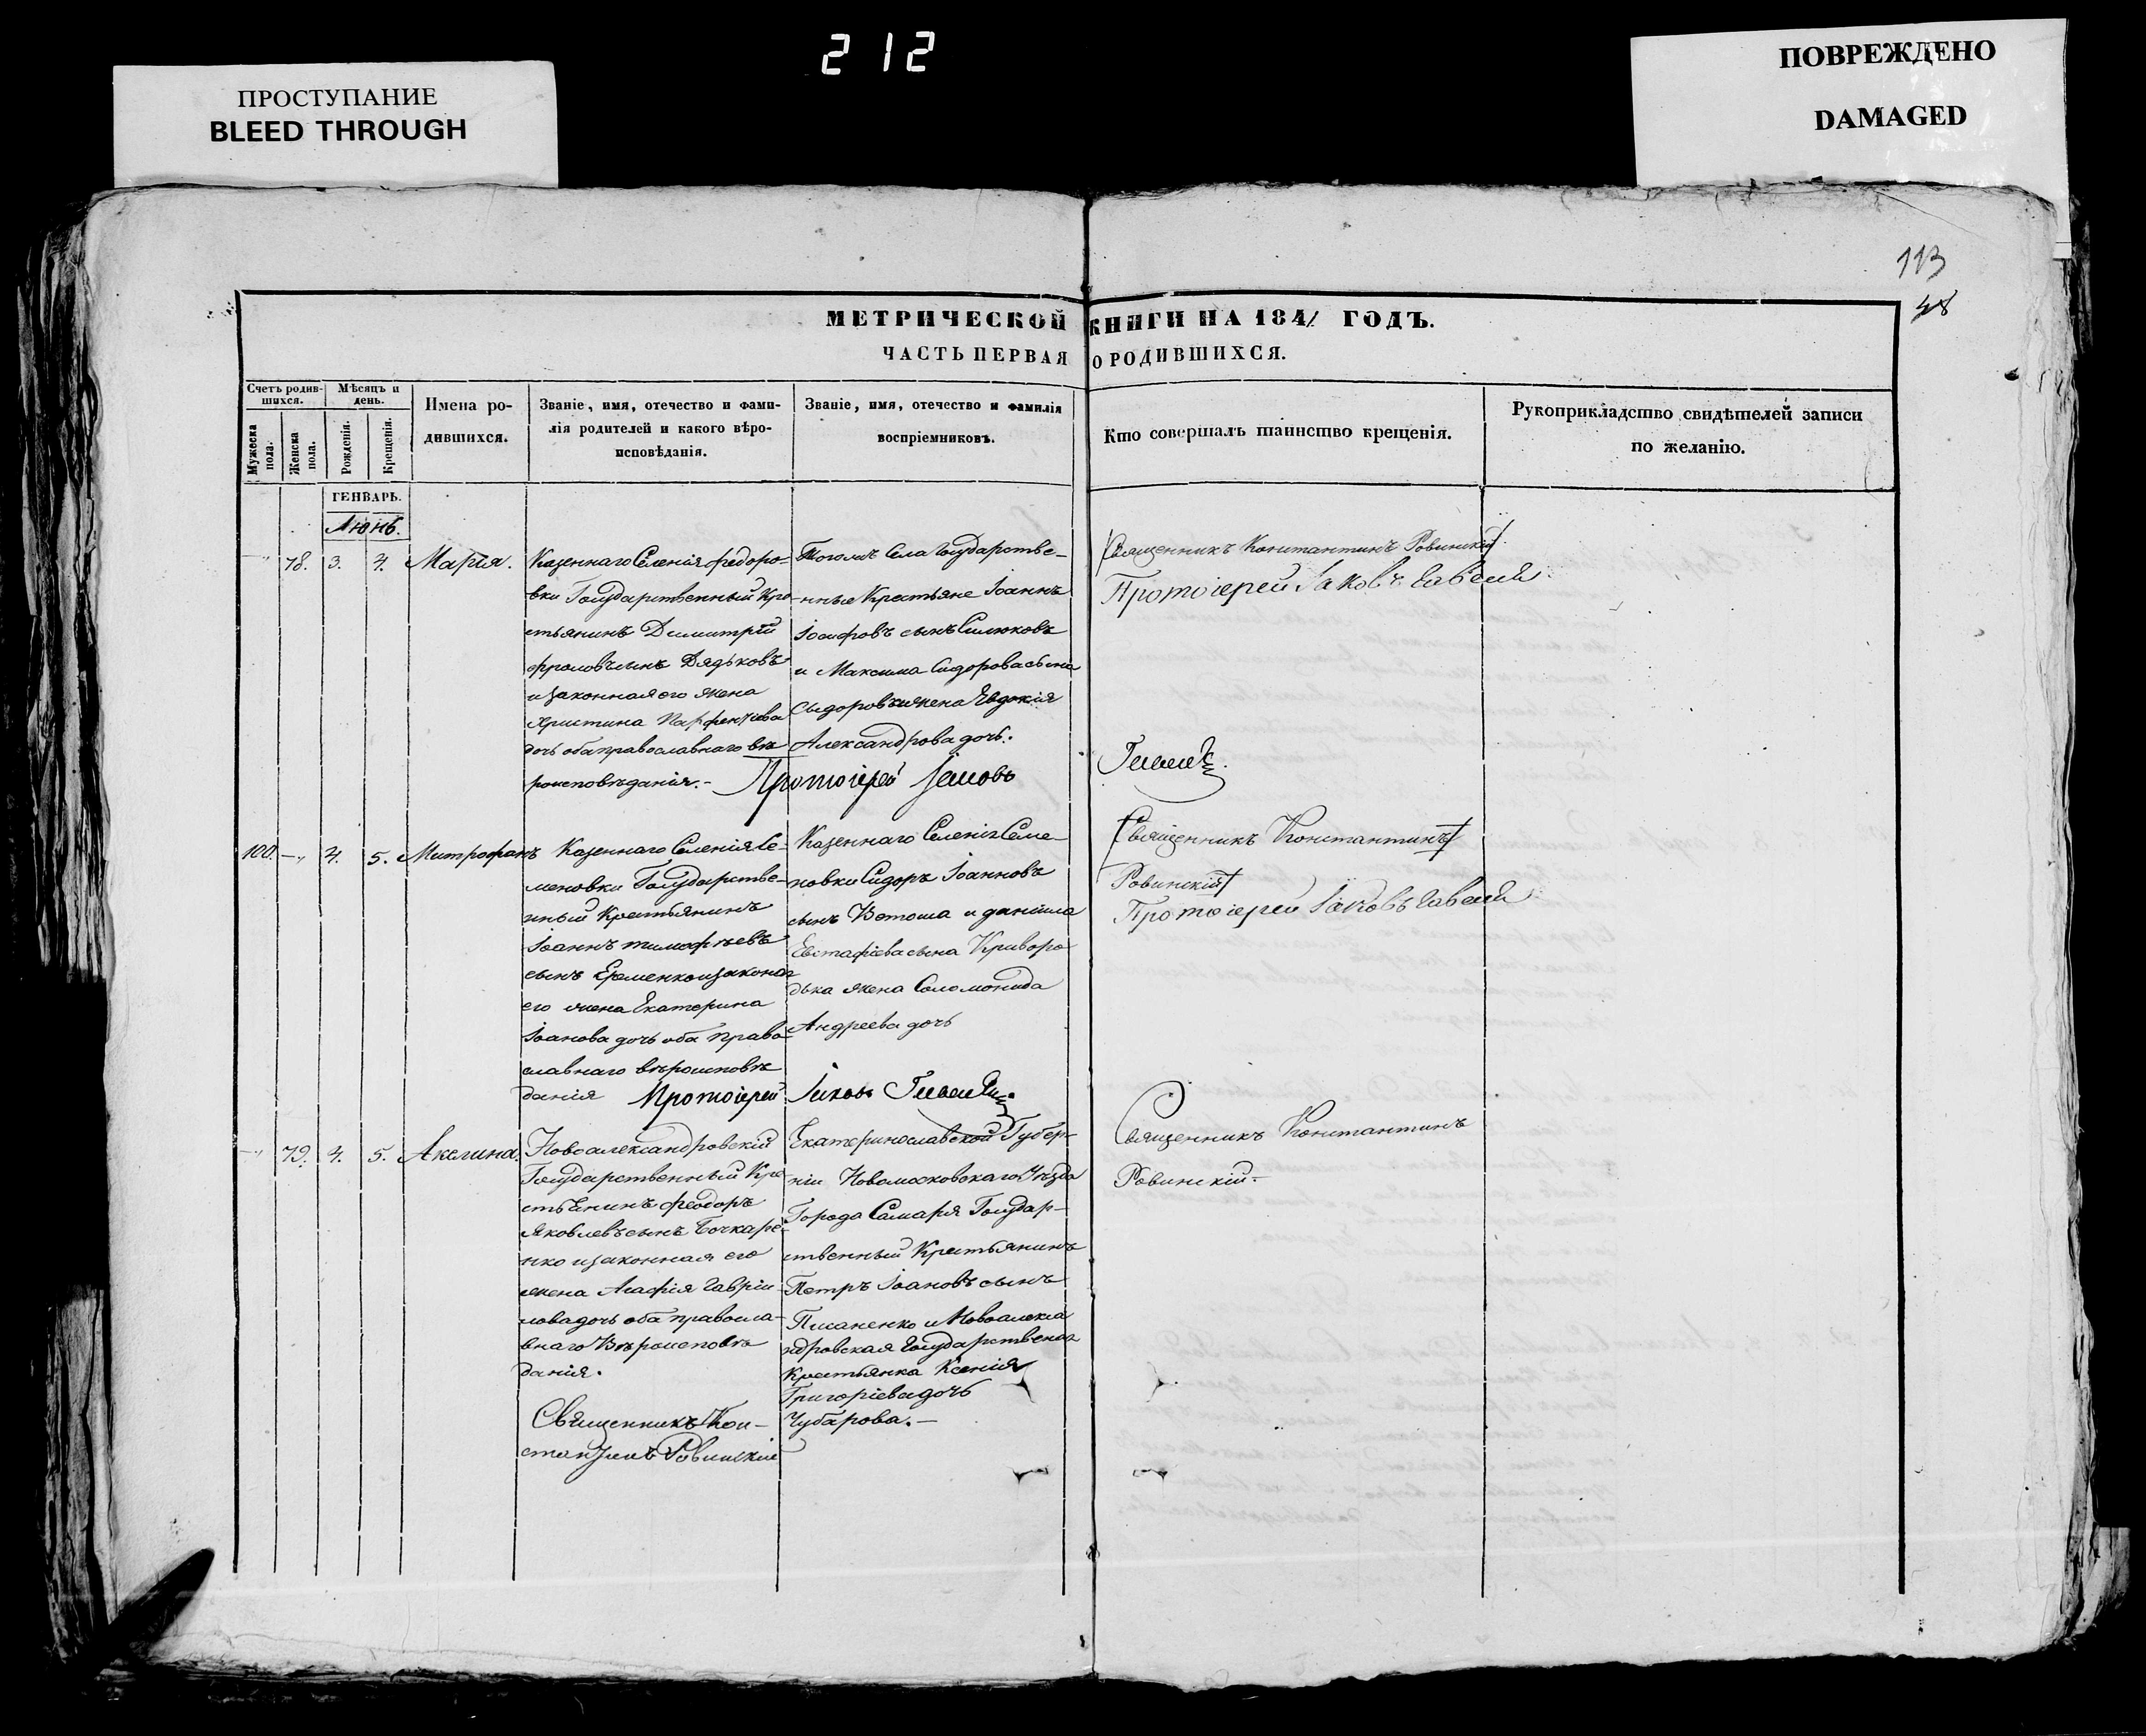 212
ПРОСТУПАНИЕ
BLEED THROUGH
ПОВРЕЖДЕНО
DAMAGED
113
48
МЕТРИЧЕСКОЙ КНИГИ НА 1841 ГОДЪ.
ЧАСТЬ ПЕРВАЯ О РОДИВШИХСЯ.
Счетъ родив-
шихся.
Мѣсяцъ и
день.
Мужеска
пола.
Женска
пола.
Рожденія.
Крещенія.
Имена ро-
дившихся.
Званіе, имя, отечество и фами-
лія родителей и какого вѣро-
исповѣданія.
Званіе, имя, отечество и фамилія
воспріемниковъ.
Кто совершалъ таинство крещенія.
Рукоприкладство свидѣтелей записи
по желанію.
ГЕНВАРЬ.
Июнь.
78. 3. 4. Марія.
Казеннаго Селенія Федоро-
вки Государственный Кре
стьянинъ Димитрій
Фроловъ сынъ Дядьковъ
и законная его жена
Христина Парфентіева
дочь оба православнаго вѣ
роисповѣданія.-
Тогожъ Села Государстве-
нные Крестьяне Іоаннъ
Іосифовъ сынъ Силюковъ
и Максима Сидорова сына
Сыдоровъ жена Евдокія
Александрова дочь.
Священникъ Константинъ Ровинскій
Протоіерей Іаковъ
Протоіерей Іаковъ
100. 4. 5. Митрофанъ
Казеннаго Селенія Се-
меновки Государстве-
нный Крестьянинъ
Іоаннъ Тимофѣевъ
сынъ Еременко и законая
его жена Екатерина
Іоанова дочь оба право
славнаго вѣроисповѣ
данія
Казеннаго Селенія Семе-
новки Сидоръ Іоанновъ
сынъ Ветоша и Даніила
Евстафіева сына Криворо
дька жена Соломонида
Андреева дочь
Протоіерей Іаковъ
Священникъ Константинъ
Ровинскій
Протоіерей Іаковъ
79. 4. 5. Акелина.
Новоалександровскій
Государственный Кре
стьянинъ Феодоръ
Яковлевъ сынъ Бочкаре-
нко и законная его
жена Агафія Гаврии
лова дочь оба правосла-
внаго Вѣроисповѣ
данія.
Екатеринославской Губер-
ніи Новомосковскаго Уѣзда
Города Самаря Государ-
ственный Крестьянинъ
Петръ Іоановъ сынъ
Писаненко и Новоалекса
ндровская Государственая
Крестьянка Ксенія
Григоріева дочь
Чубарова.-
Священникъ Константинъ
Ровинскій.-
Священникъ Кон-
стантинъ Ровинскій